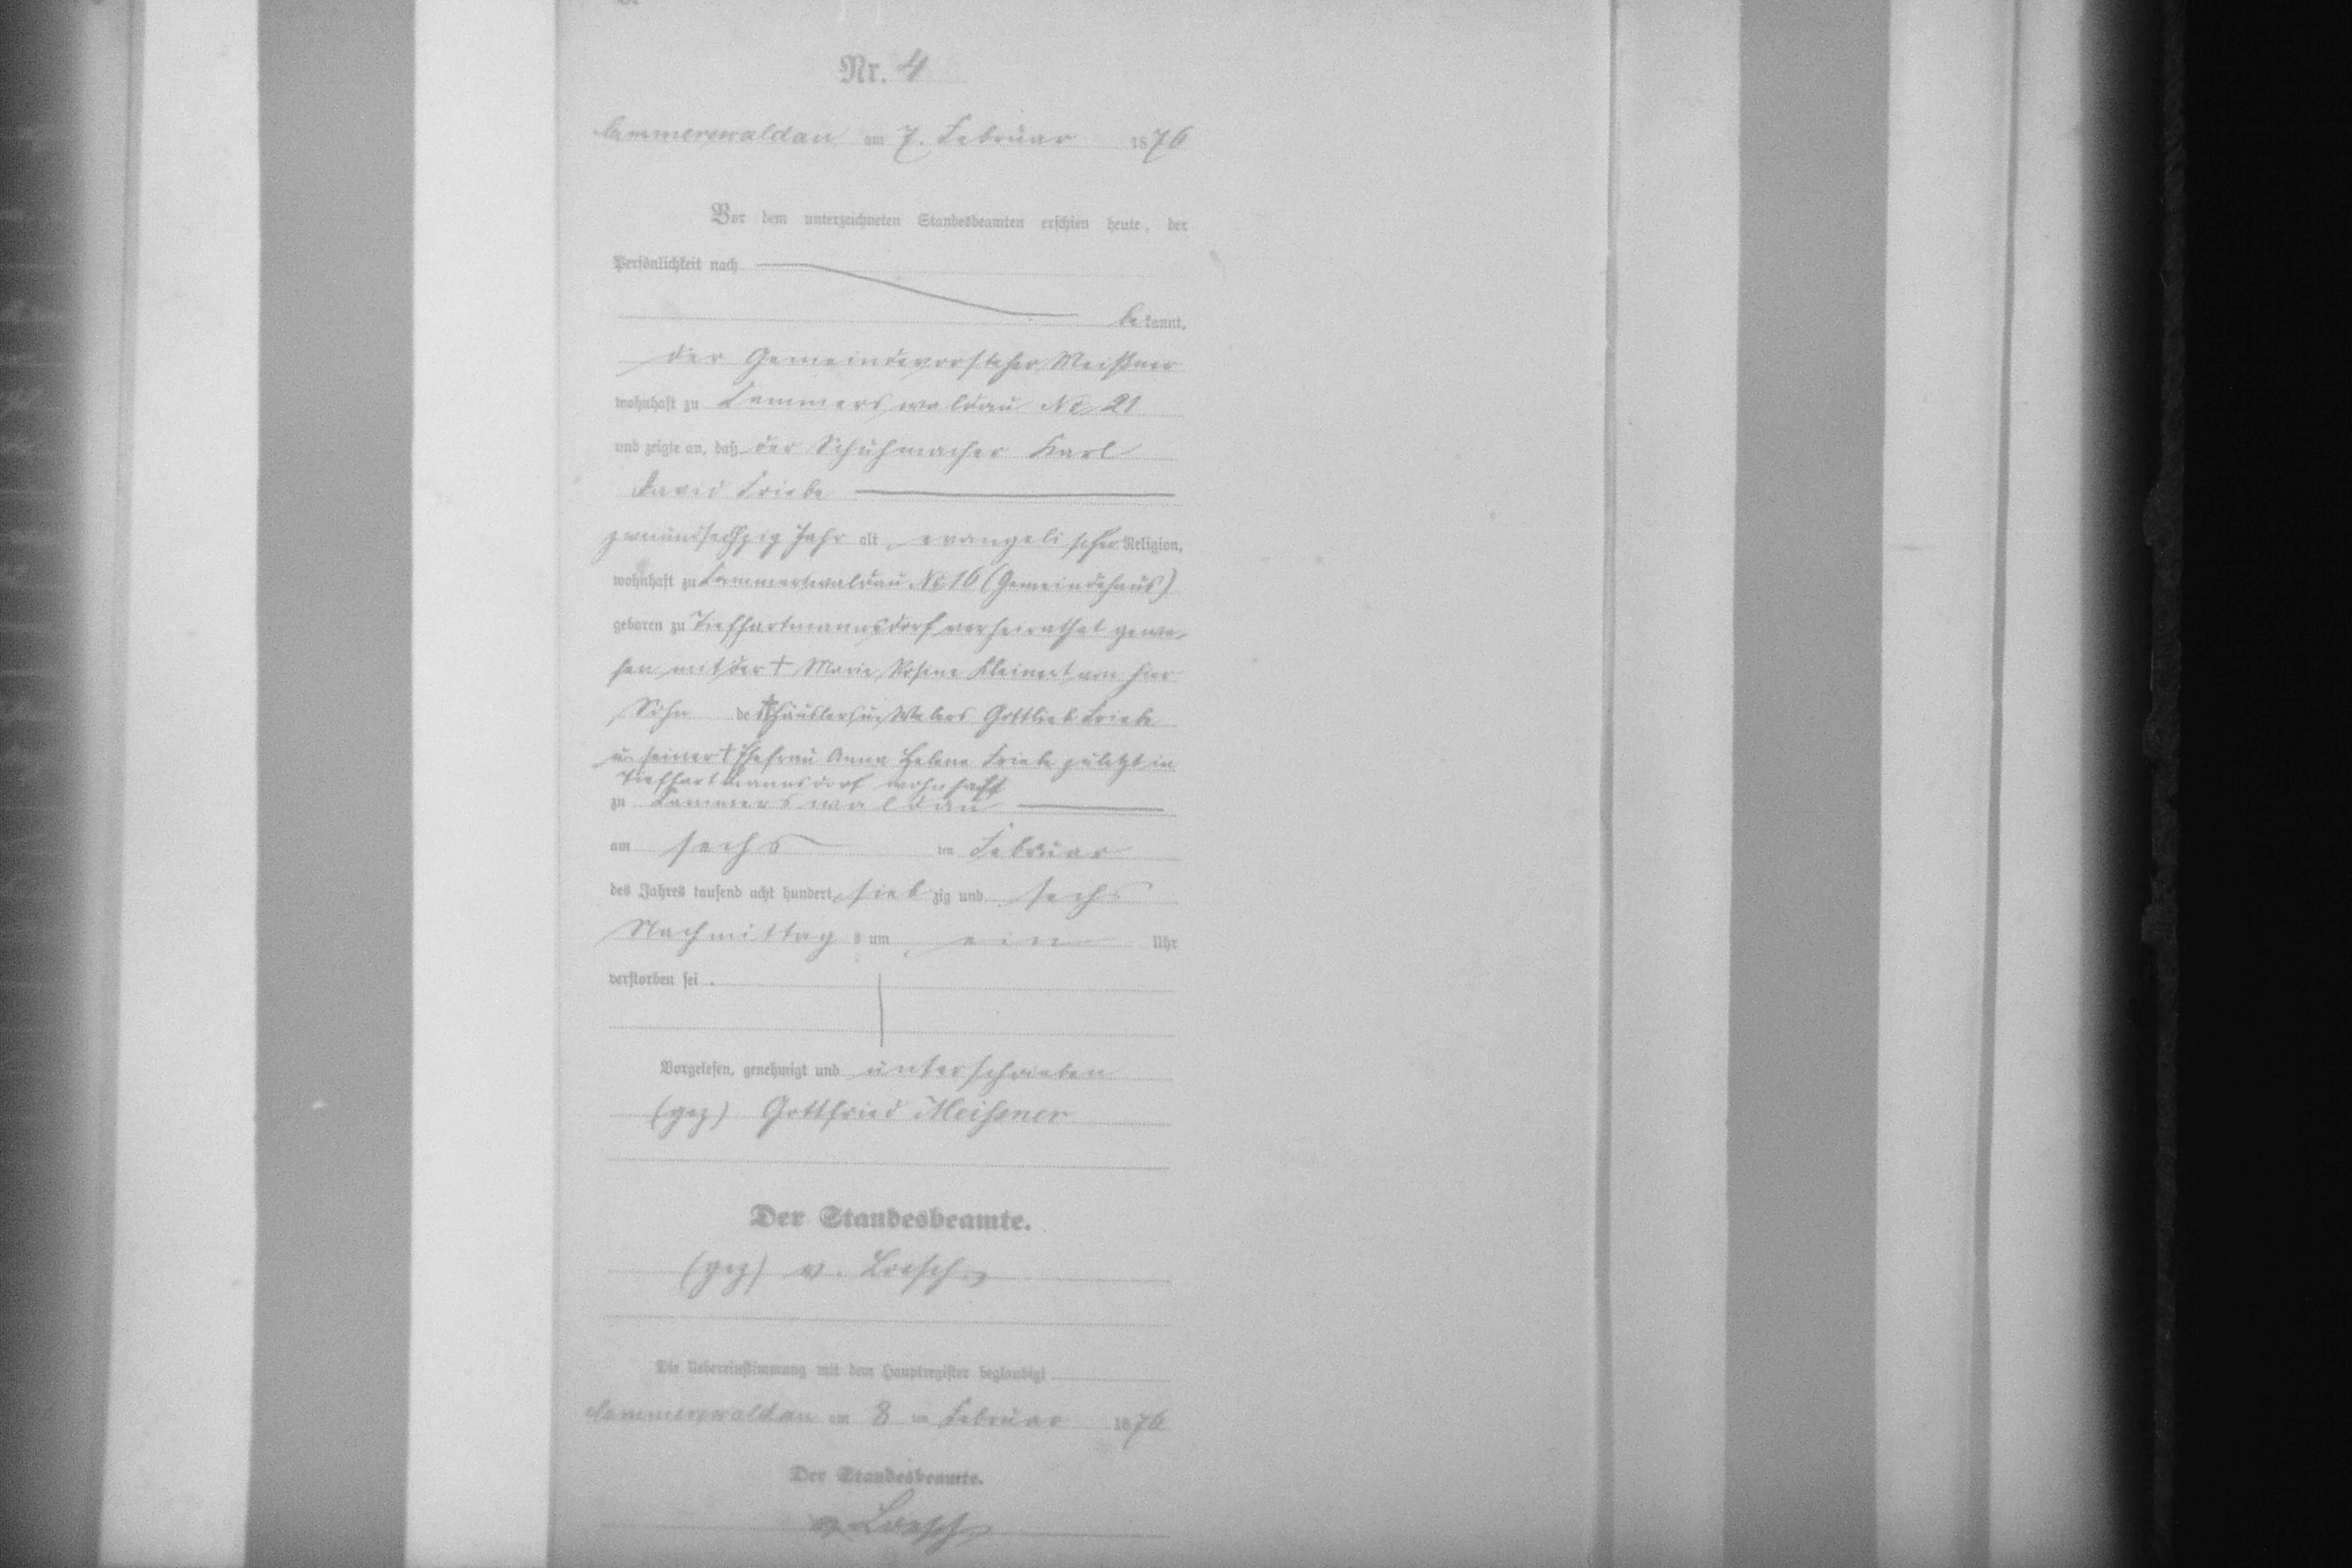 Nr. 4
Cammerswaldau am 7. Februar 1876
Vor dem unterzeichneten Standesbeamten erschien heute, der
Persönlichkeit nach
bekannt,
der Gemeindevorsteher Meißner
wohnhaft zu Cammerswaldau No 21
und zeigte an, daß der Schuhmacher Karl
David Friebe
zweiundsechzig Jahr alt evangelischer Religion,
wohnhaft zu Cammerswaldau No 16 (Gemeindehaus)
geboren zu Tiefhartmannsdorf verheirathet gewe-
sen mit der † Marie Rosine Kleinert von hier
Sohn des † Häuslers u Webers Gottlieb Friebe
u. seiner † Ehefrau Anna Helene Friebe zuletzt in
Tiefhartmannsdorf wohnhaft
zu Cammerswaldau
am sechsten Februar
des Jahres tausend acht hundert siebzig und sechs
Nachmittags um ein Uhr
verstorben sei.
Vorgelesen, genehmigt und unterschrieben
(gez) Gottfried Meißner
Der Standesbeamte.
(gez) v. Loesch
Die Uebereinstimmung mit dem Hauptregister beglaubigt
Cammerswaldau am 8 ten Februar 1876
Der Standesbeamte.
v. Loesch